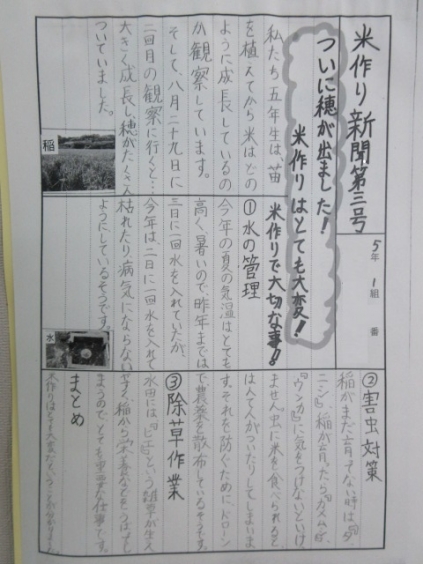 米作り新聞第三号
5年 1組 番
ついに穂が出ました!
米作りはとても大変!
私たち五年生は、苗
を植えてから米はどの
ように成長しているの
か観察しています。
そして、八月二十九日に
二回目の観察に行くと…
大きく成長し、穂がたくさん
ついていました。
稲
米作りで大切な事!!
①水の管理
今年の夏の気温はとても
高く、暑いので、昨年までは
三日に一回水を入れていたが、
今年は、二日に一回水を入れて
枯れたり病気にならない
ようにしているそうです。
水
②害虫対策
稲がまだ育ってない時は、『タ
ニシ』、稲が育ったら『カメムシ』、
『ウンカ』に気をつけないといけ
ません。虫に米を食べられると
す。それを防ぐためにドローン
で農薬を散布しているそうです。
③除草作業
水田には、『ヒエ』という雑草が生え
まうので、とても重要な仕事です。
まとめ